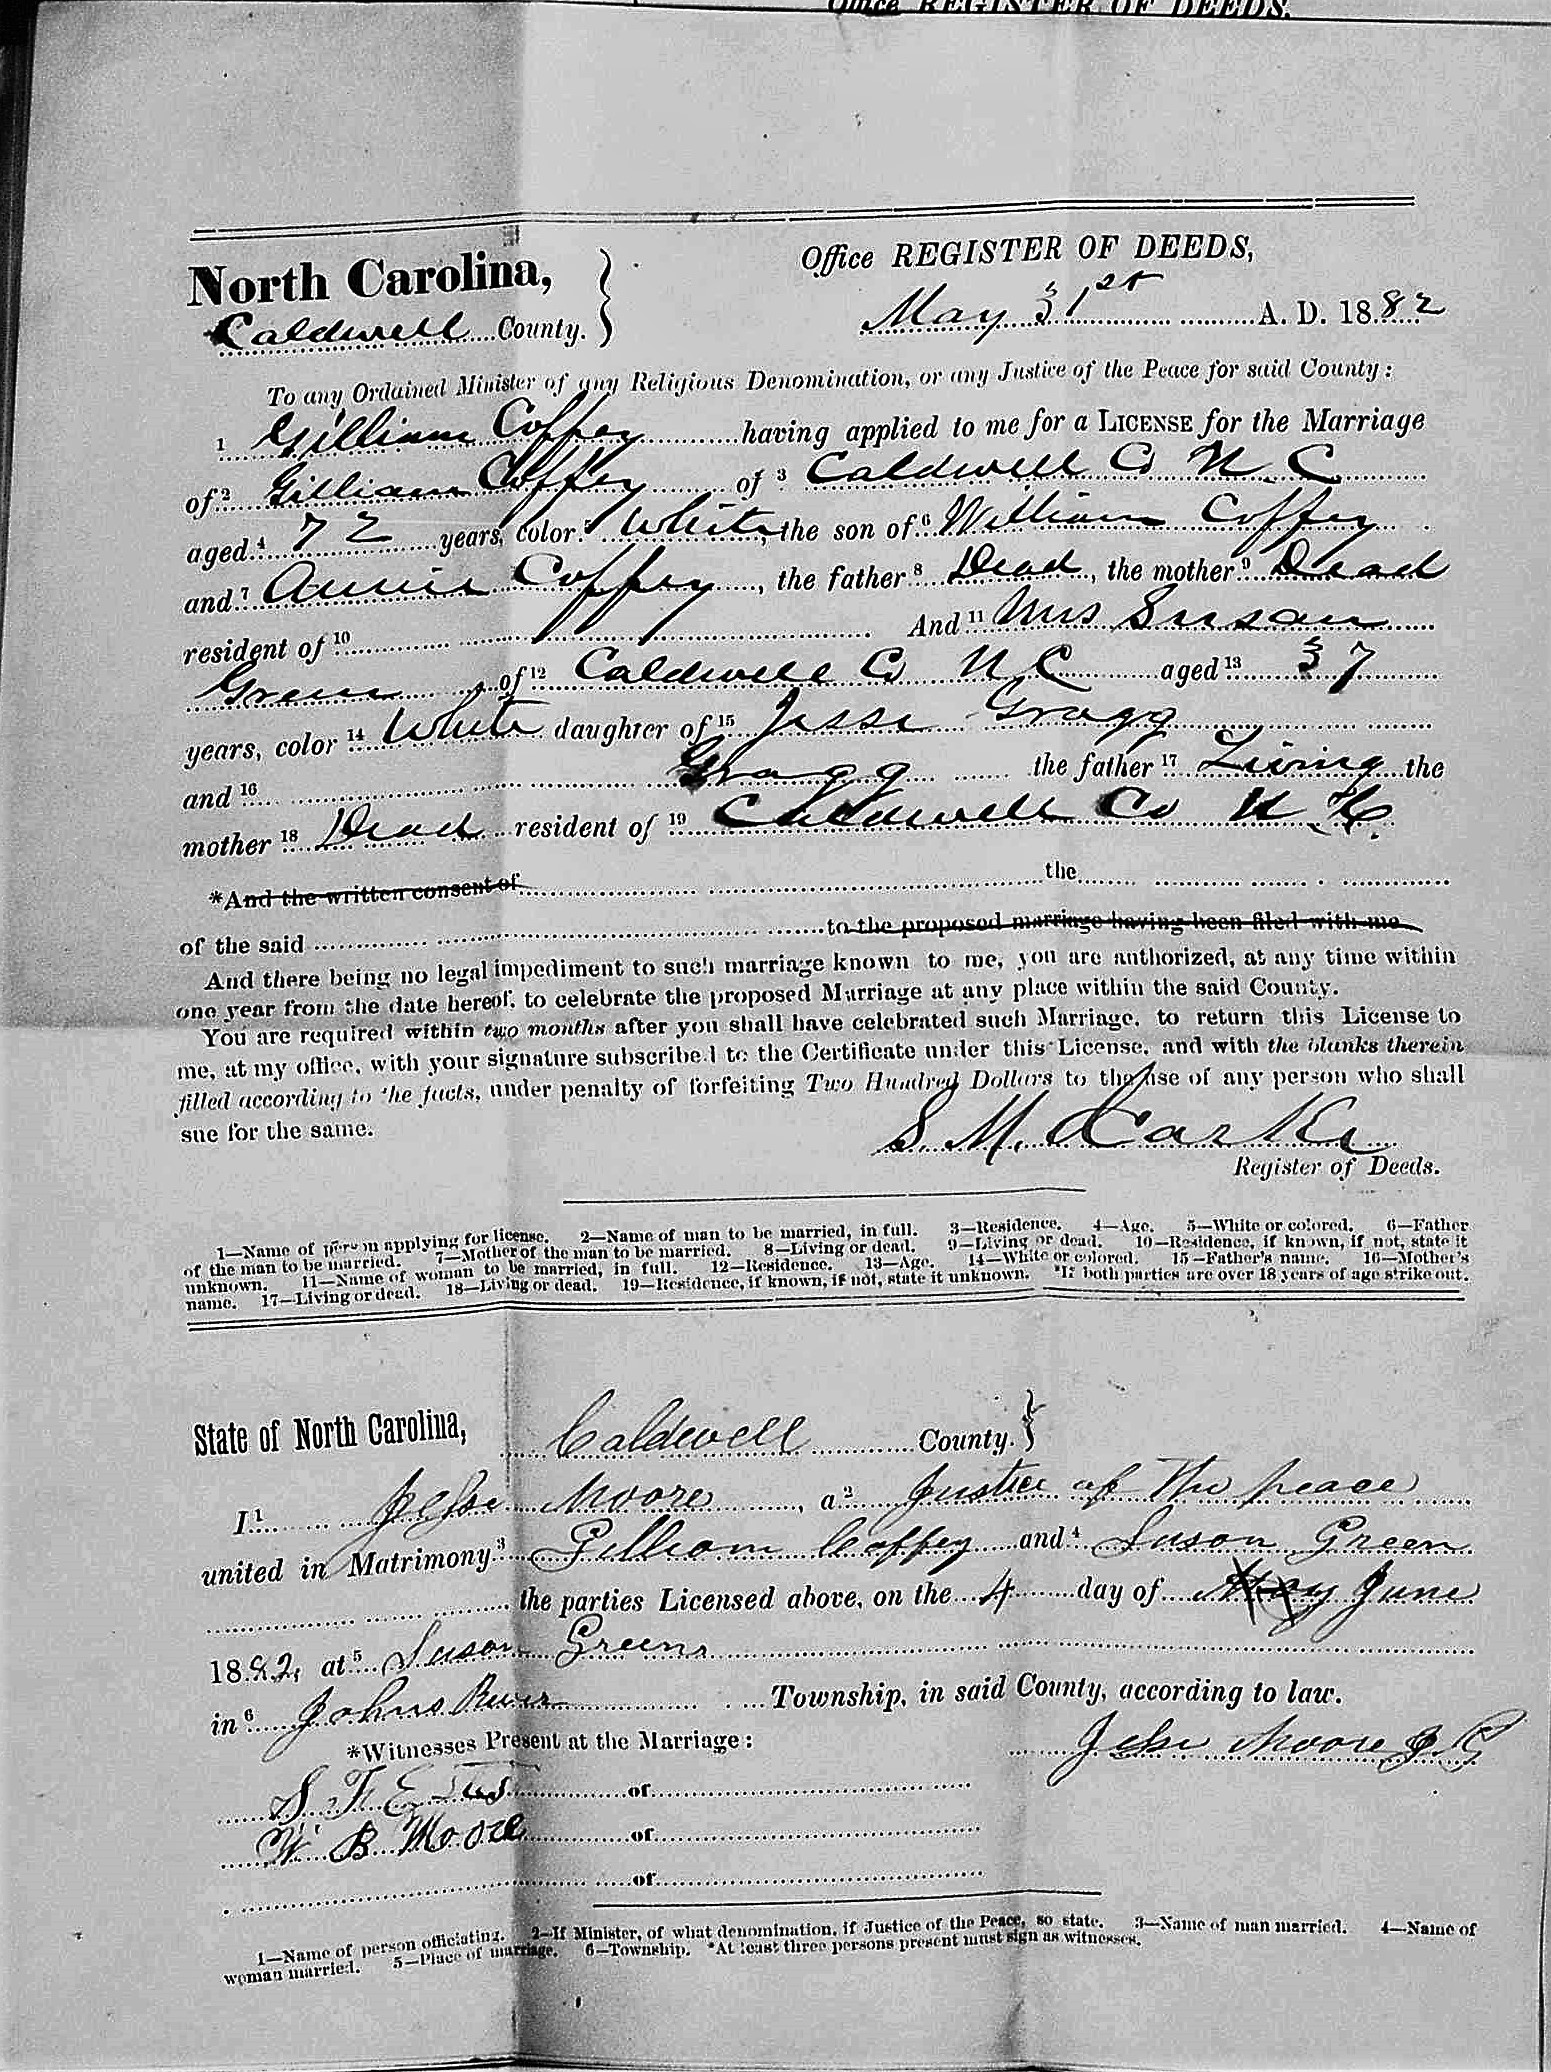 Office REGISTER OF DEEDS.
North Carolina,
Office REGISTER OF DEEDS,
Caldwell County.
May 31st A. D. 1882
To any Ordained Minister of any Religious Denomination, or any Justice of the Peace for said County:
1 Gilliam Coffey having applied to me for a LICENSE for the Marriage
of 2 Gilliam Coffey of 3 Caldwell Co N. C.
aged 4 72 years, color 5 White, the son of 6 William Coffey
and 7 Annie Coffey, the father 8 Dead, the mother 9 Dead
resident of 10 And 11 Mrs Susan
Green, of 12 Caldwell Co N C aged 13 37
years, color 14 White daughter of 15 Jesse Gragg
and 16 Gragg the father 17 Living the
mother 18 Dead resident of 19 Caldwell Co N. C.
*And the written consent of the
of the said to the proposed marriage having been filed with me
And there being no legal impediment to such marriage known to me, you are authorized, at any time within
one year from the date hereof, to celebrate the proposed Marriage at any place within the said County.
You are required within two months after you shall have celebrated such Marriage, to return this License to
me, at my office, with your signature subscribed to the Certificate under this License, and with the blanks therein
filled according to the facts, under penalty of forfeiting Two Hundred Dollars to the use of any person who shall
sue for the same.
S. M.
Register of Deeds.
1—Name of person applying for license. 2—Name of man to be married, in full. 3—Residence. 4—Age. 5—White or colored. 6—Father
of the man to be married. 7—Mother of the man to be married. 8—Living or dead. 9—Living or dead. 10—Residence, if known, if not, state it
unknown. 11—Name of woman to be married, in full. 12—Residence. 13—Age. 14—White or colored. 15—Father's name. 16—Mother's
name. 17—Living or dead. 18—Living or dead. 19—Residence, if known, if not, state it unknown. *If both parties are over 18 years of age strike out.
State of North Carolina, Caldwell County.
I 1 Jesse Moore, a 2 Justice of the peace
united in Matrimony 3 Gilliam Coffey and 4 Suson Green
the parties Licensed above, on the 4 day of May June
1882, at 5 Suson Greens
in 6 Johns River Township, in said County, according to law.
*Witnesses Present at the Marriage:
Jesse Moore J. P.
S. F. of
W B Moore of
of
1—Name of person officiating. 2—If Minister, of what denomination, if Justice of the Peace, so state. 3—Name of man married. 4—Name of
woman married. 5—Place of marriage. 6—Township. *At least three persons present must sign as witnesses.